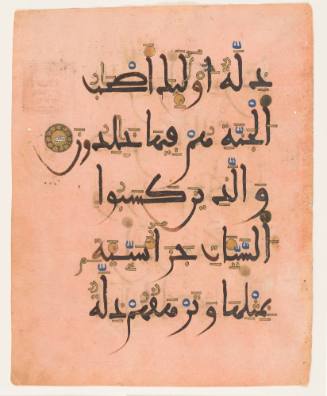 ذِلَّةٌ أُوْلَٰئِكَ أَصْحَٰبُ
الْجَنَّةِ هُمْ فِيهَا خَٰلِدُونَ
وَالَّذِينَ كَسَبُوا
السَّيِّـَٔاتِ جَزَآءُ سَيِّئَةٍ
بِمِثْلِهَا وَتَرْهَقُهُمْ ذِلَّةٌ